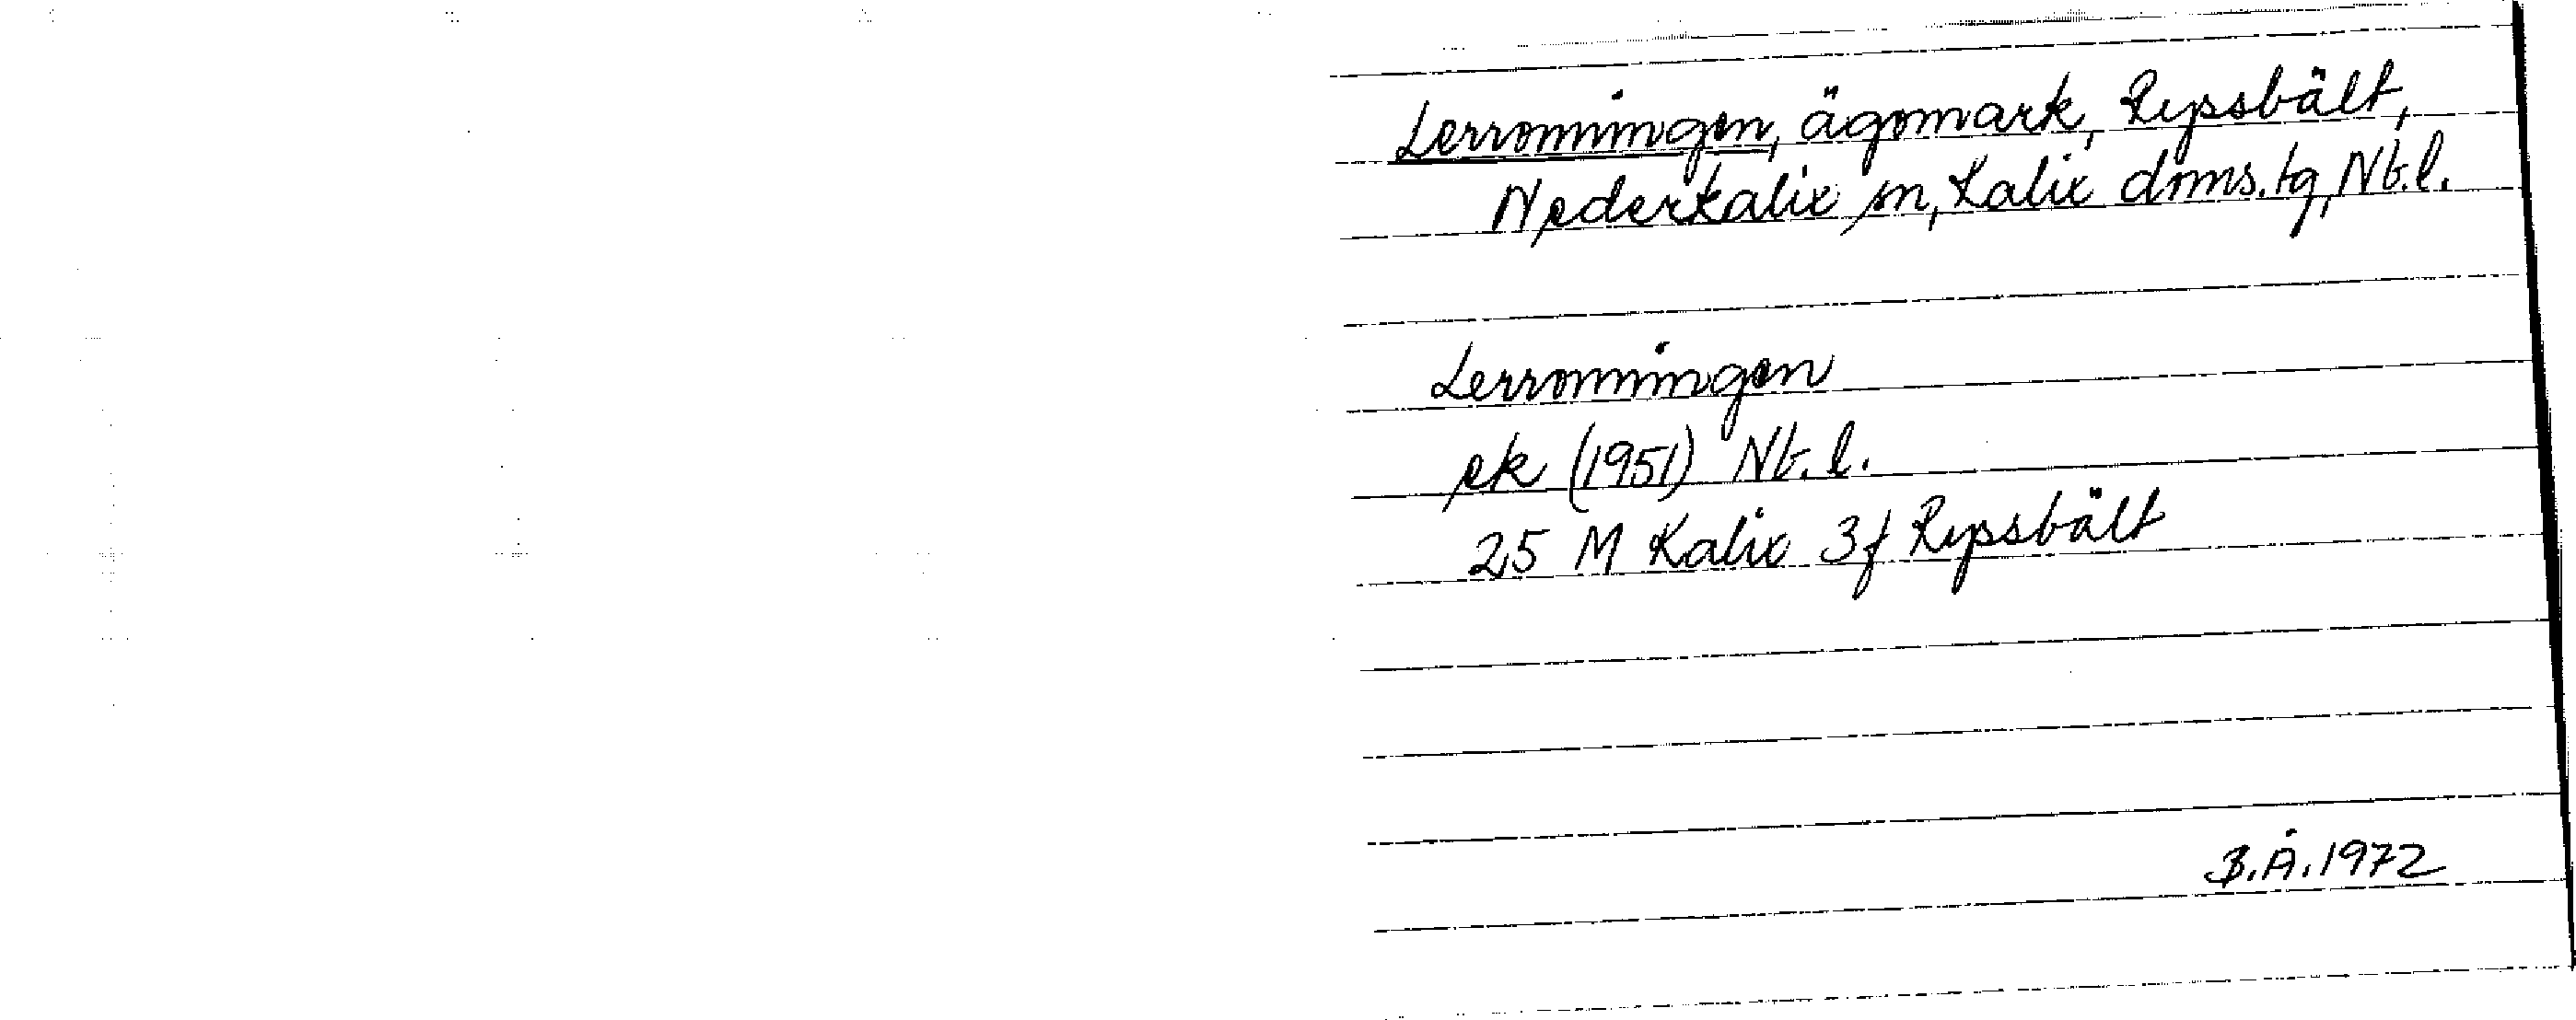 Lerronningen, ägomark, Rypsbält,
Nederkalix sn, Kalix doms.tg, Nb.l.
Lerronningen
ek (1951) Nb.l.
25 M Kalix 3f Rypsbält
B.Å.1972